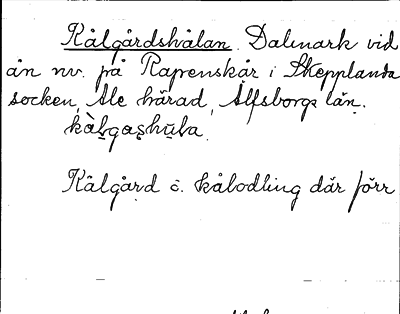 Kålgårdshålan. Dalmark vid
ån nv. på Raprenskår i Skepplanda
socken, Ale härad, Älfsborgs län.
kàlgashula.
Kålgård o. kålodling där förr